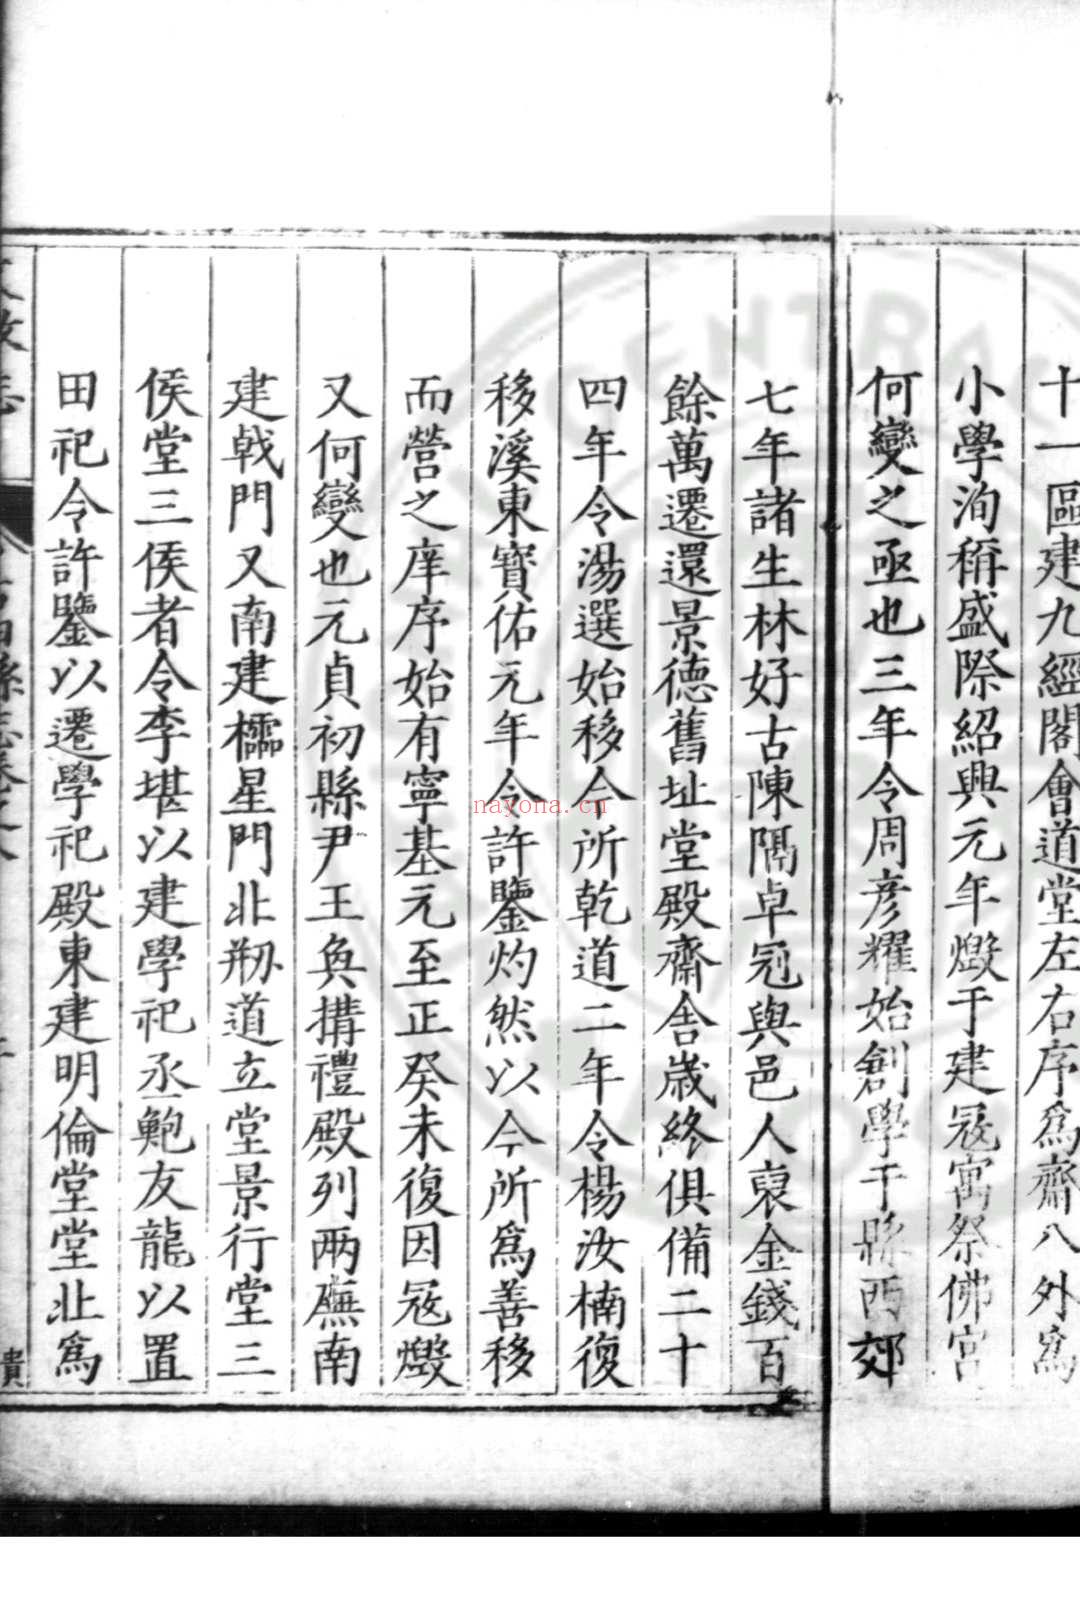 十一區建九經閣會道堂左右序爲齋八外爲
小學洵稱盛際紹興元年燬于建冦寓祭佛宮
何變之亟也三年令周彦耀始創學于縣西郊
七年諸生林好古陳隔卓冠與邑人裒金錢百
餘萬遷還景德舊址堂殿齋舍歳終俱備二十
四年令湯選始移今所乾道二年令楊汝楠復
移溪東寳佑元年令許鑒灼然以今所爲善移
而營之庠序始有寧基元至正癸未復因冦燬
又何變也元貞初縣尹王奐搆禮殿列兩廡南
建戟門又南建櫺星門北剏道立堂景行堂三
侯堂三侯者令李堪以建學祀丞鮑友龍以置
田祀令許鑒以遷學祀殿東建明倫堂堂北爲
縣志卷之
貴
nayona.cn
CENTRAL